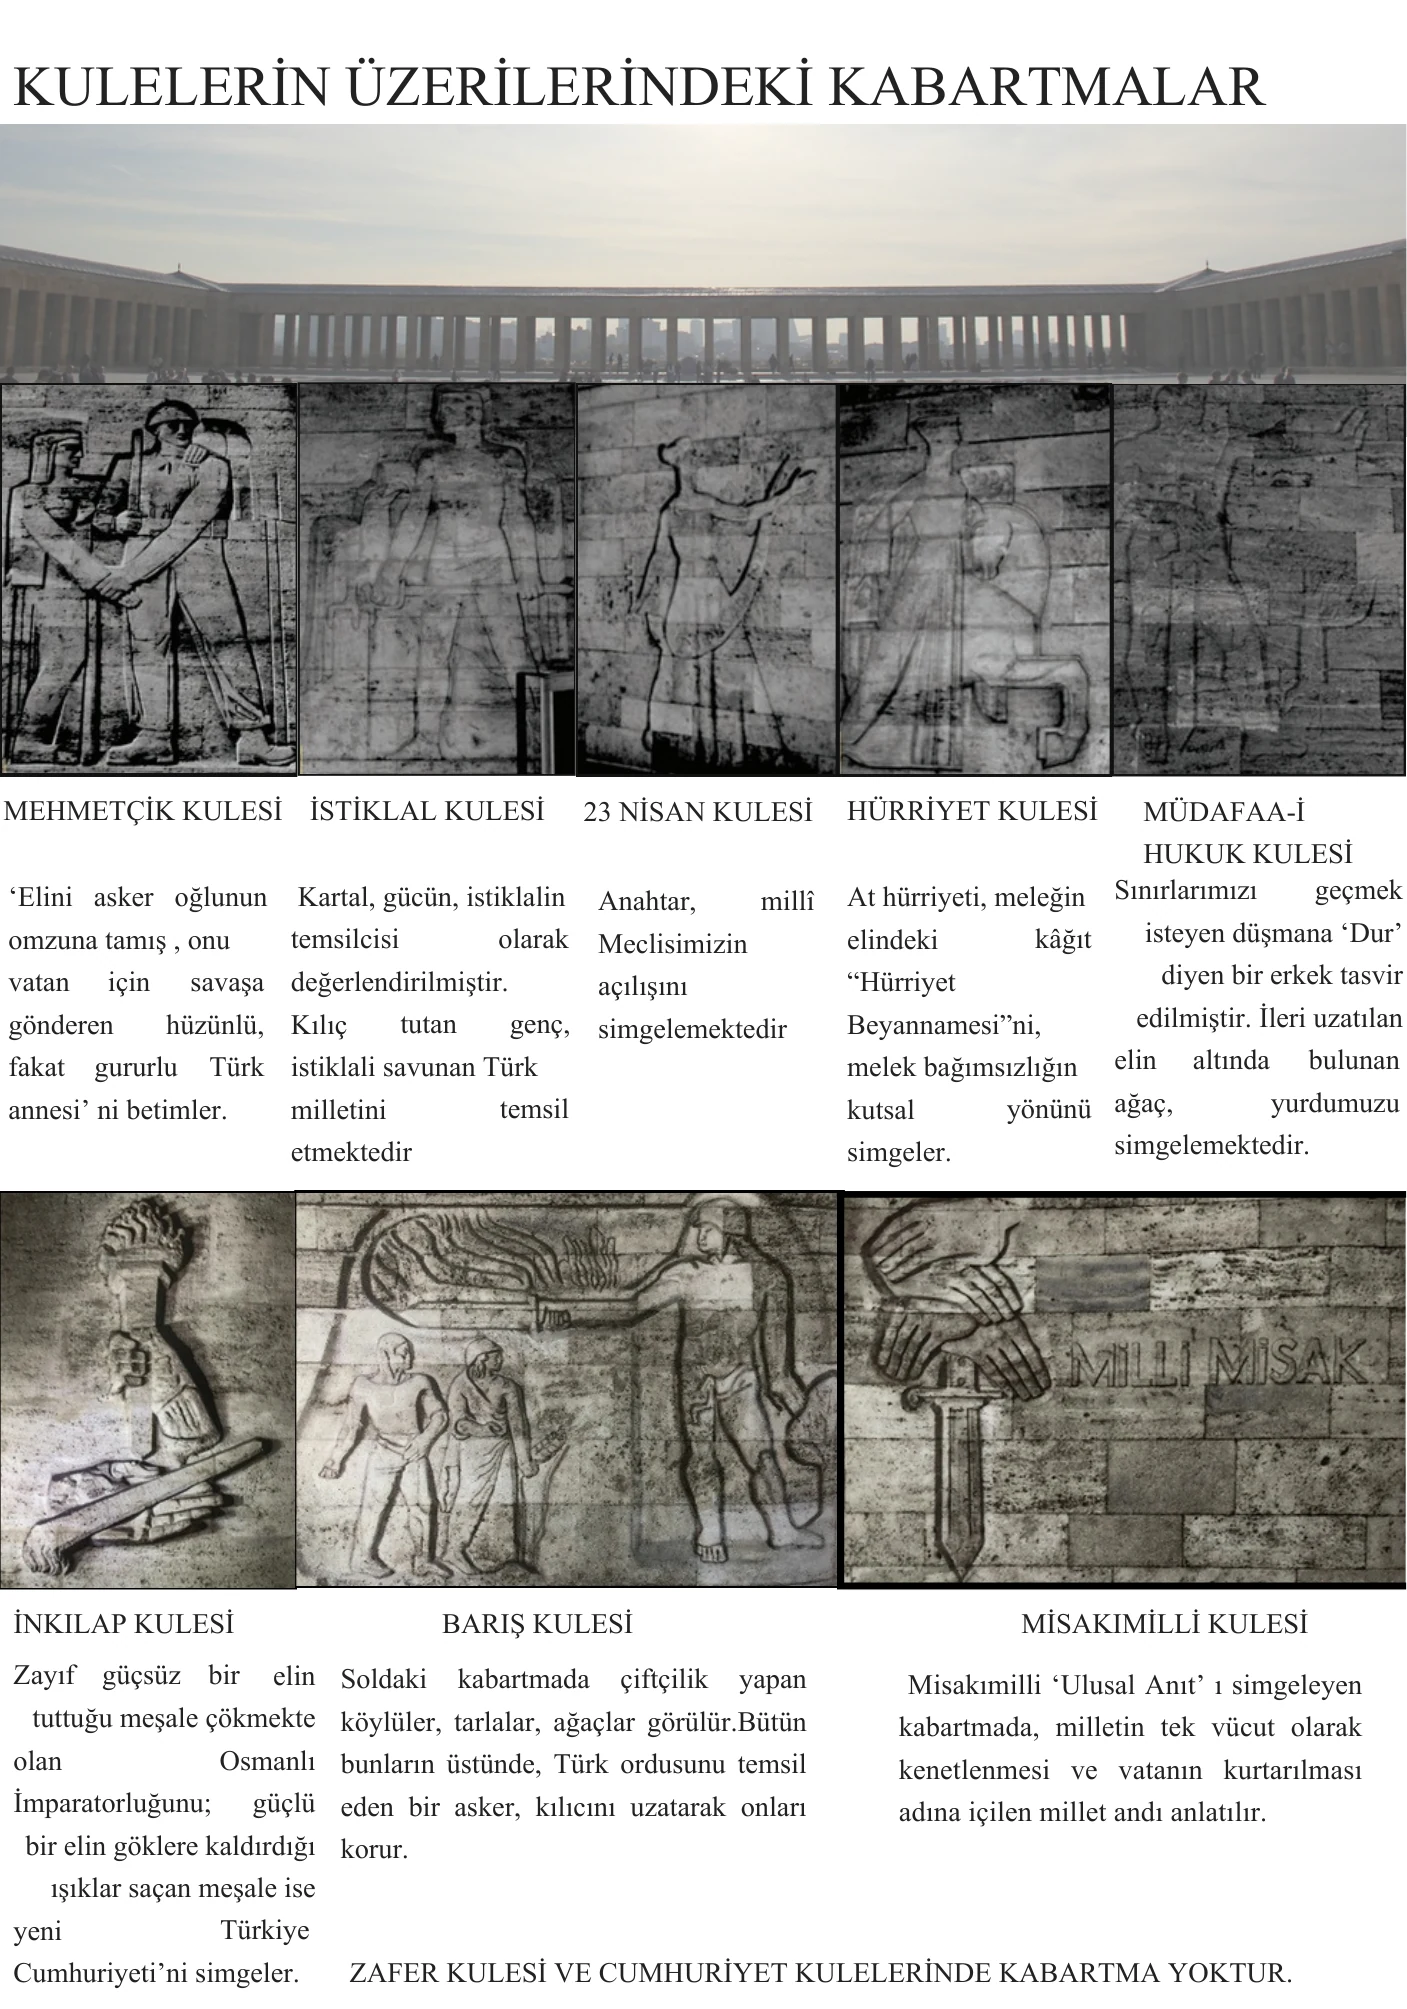 KULELERİN ÜZERİLERİNDEKİ KABARTMALAR
MEHMETÇİK KULESİ
‘Elini asker oğlunun
omzuna tamış , onu
vatan için savaşa
gönderen hüzünlü,
fakat gururlu Türk
annesi’ ni betimler.
İSTİKLAL KULESİ
Kartal, gücün, istiklalin
temsilcisi olarak
değerlendirilmiştir.
Kılıç tutan genç,
istiklali savunan Türk
milletini temsil
etmektedir
23 NİSAN KULESİ
Anahtar, millî
Meclisimizin
açılışını
simgelemektedir
HÜRRİYET KULESİ
At hürriyeti, meleğin
elindeki kâğıt
“Hürriyet
Beyannamesi”ni,
melek bağımsızlığın
kutsal yönünü
simgeler.
MÜDAFAA-İ
HUKUK KULESİ
Sınırlarımızı geçmek
isteyen düşmana ‘Dur’
diyen bir erkek tasvir
edilmiştir. İleri uzatılan
elin altında bulunan
ağaç, yurdumuzu
simgelemektedir.
MİLLİ MİSAK
İNKILAP KULESİ
Zayıf güçsüz bir elin
tuttuğu meşale çökmekte
olan Osmanlı
İmparatorluğunu; güçlü
bir elin göklere kaldırdığı
ışıklar saçan meşale ise
yeni Türkiye
Cumhuriyeti’ni simgeler.
BARIŞ KULESİ
Soldaki kabartmada çiftçilik yapan
köylüler, tarlalar, ağaçlar görülür.Bütün
bunların üstünde, Türk ordusunu temsil
eden bir asker, kılıcını uzatarak onları
korur.
MİSAKIMİLLİ KULESİ
Misakımilli ‘Ulusal Anıt’ ı simgeleyen
kabartmada, milletin tek vücut olarak
kenetlenmesi ve vatanın kurtarılması
adına içilen millet andı anlatılır.
ZAFER KULESİ VE CUMHURİYET KULELERİNDE KABARTMA YOKTUR.